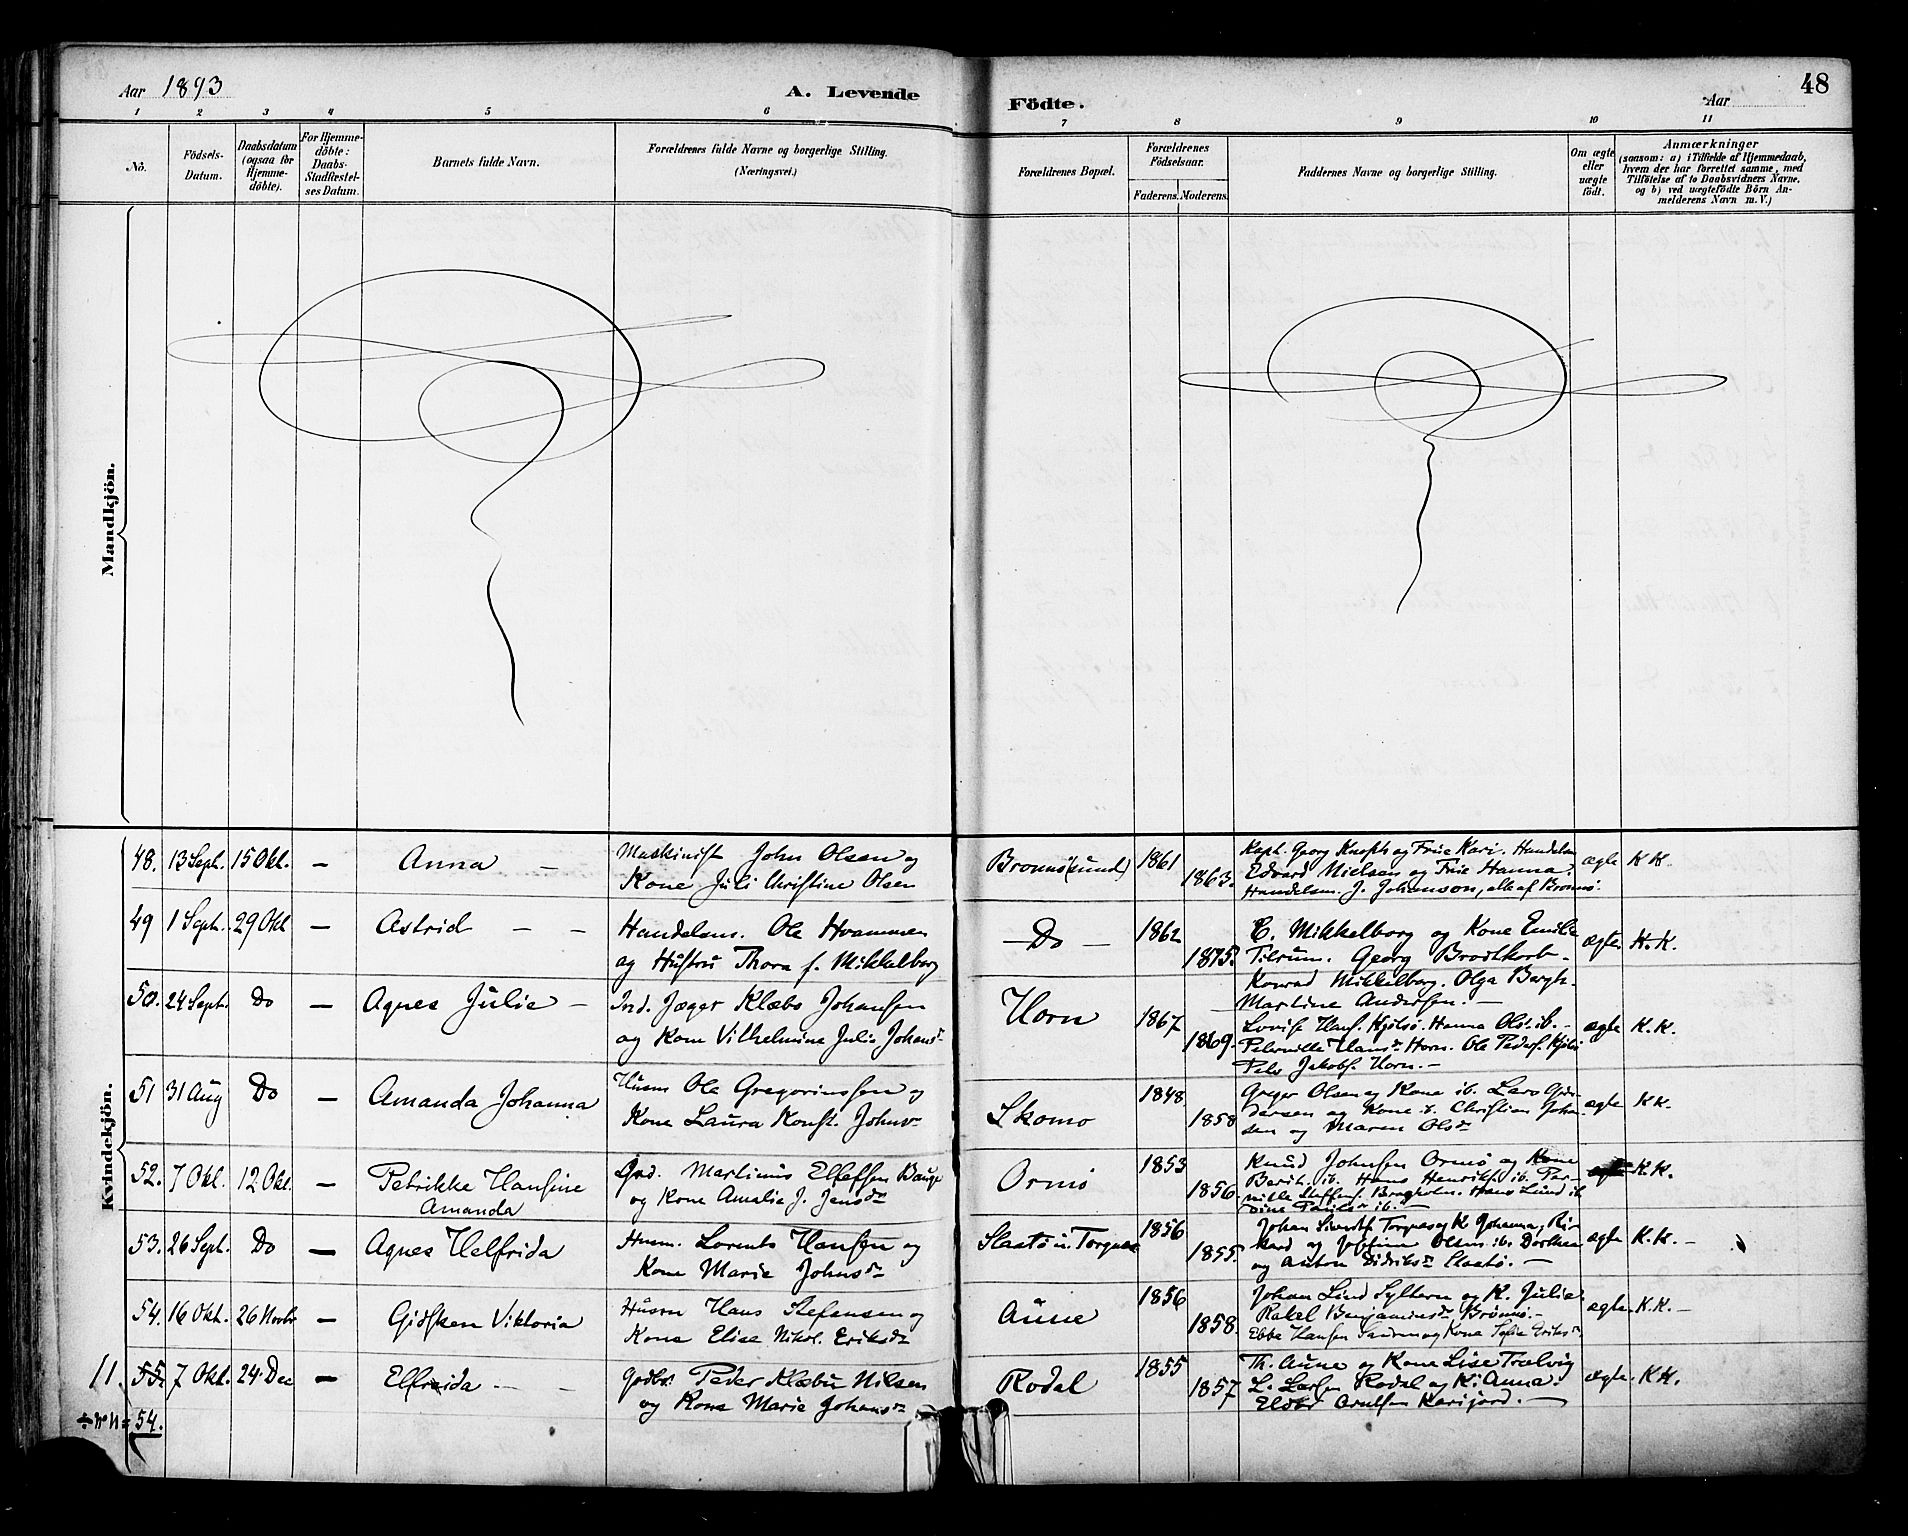 Aar 1893
A. Levende
Födte.
Aar
48
1 2 3 4 5 6 7 8 9 10 11
No.
Födsels-Datum.
Daabsdatum (ogsaa for Hjemme-döbte).
For Hjemme-döbte: Daabs-Stadfæstel-ses Datum.
Barnets fulde Navn.
Forældrenes fulde Navne og borgerlige Stilling.
(Næringsvei.)
Forældrenes Bopæl.
Forældrenes Födselsaar.
Faderens. Moderens.
Faddernes Navne og borgerlige Stilling.
Om ægte eller uægte født.
Anmærkninger
(saasom: a) i Tilfælde af Hjemmedaab,
hvem der har forrettet samme, med
Tilföielse af to Daabsvidners Navne,
og b) ved uægtefödte Börn An-
melderens Navn m. V.)
Mandkjön.
Kvindekjön.
48. 13 Sept. 15 Okt. — Anna — Maskinist John Olsen og
Kone Juli Christine Olsen
Bronnö(sund) 1861 1863.
Kapt. Georg Knoph og Frue Kari. Handelsm
Edvard Nielsen og Frue Hanna.
Handelsm. J. Johanson, alle af Bronnö.
ægte K K.
49 1 Sept. 29 Okt — Astrid — — Handelsm. Ole Hvammen
og Hustru Thora f. Mikkelborg
— Do — 1862 1875.
E. Mikkelborg og Kone Emilie
Tilrum. Georg Brodtkorb.
Konrad Mikkelborg. Olga Bergh.
Martine Andersen. —
ægte. K. K.
50. 24 Sept. Do — Agnes Julie — Ind. Jæger Klæbo Johansen
og Kone Vilhelmine Julie Johans
Horn 1867 1869.
Lovise Hans. Kjölsö. Hanna Ols. ib. —
Pernille Hans Horn. Ole Peders. Kjölsö
Peder Jakobs. Horn. —
ægte K. K.
51 31 Aug Do — Amanda Johanna Husm Ole Gregoriussen og
Kone Laura Konst. Johns
Skomo 1848. 1858
Greger Olsen og Kone ib. Lars
og Kone ib. Christian Johan-
sen og Maren Ols
ægte K K.
52. 7 Okt. 12 Okt. — Petrikke Hansine
Amanda
Grd. Martinus Elefsen Bauge
og Kone Amalia J. Jens
Ormö 1853 1856.
Knud Johnsen Ormö og Kone
Berit. ib. Hans Henriks ib. Per-
nille Steffens. Hans Lund ib
ægte K. K.
53. 26 Sept. Do — Agnes Helfrida Husm. Lorents Hansen og
Kone Marie Johns
Slaatö u. Torgnes 1856 1855.
Johan Torgnes og K Johanna, Ri-
kard og Josefine Olsen ib. Dorthea
og Anton Didriks Slaatö. —
ægte K. K. —
54. 16 Okt. 26 Novbr — Gidsken Viktoria Husm Hans Stefensen og
Kone Elise Nikol. Eriks
Aune 1856 1858.
Johan Lind Sylteren og K. Julie.
Rakel Benjamins Brönnö. —
Ebbe Hansen og Kone Sofie Eriks
ægte. K. K. —
11. 55. 7 Okt. 24 Dec — Elfrida — — Gdbr. Peder Klæbu Nilsen
og Kone Marie Johans
Rodal 1855 1857
Th. Aune og Kone Lise Trælvig
L. Larsen Rodal og K. Anna.
Arntsen Karifjord. —
ægte. K K.
÷ N 11 = 54.